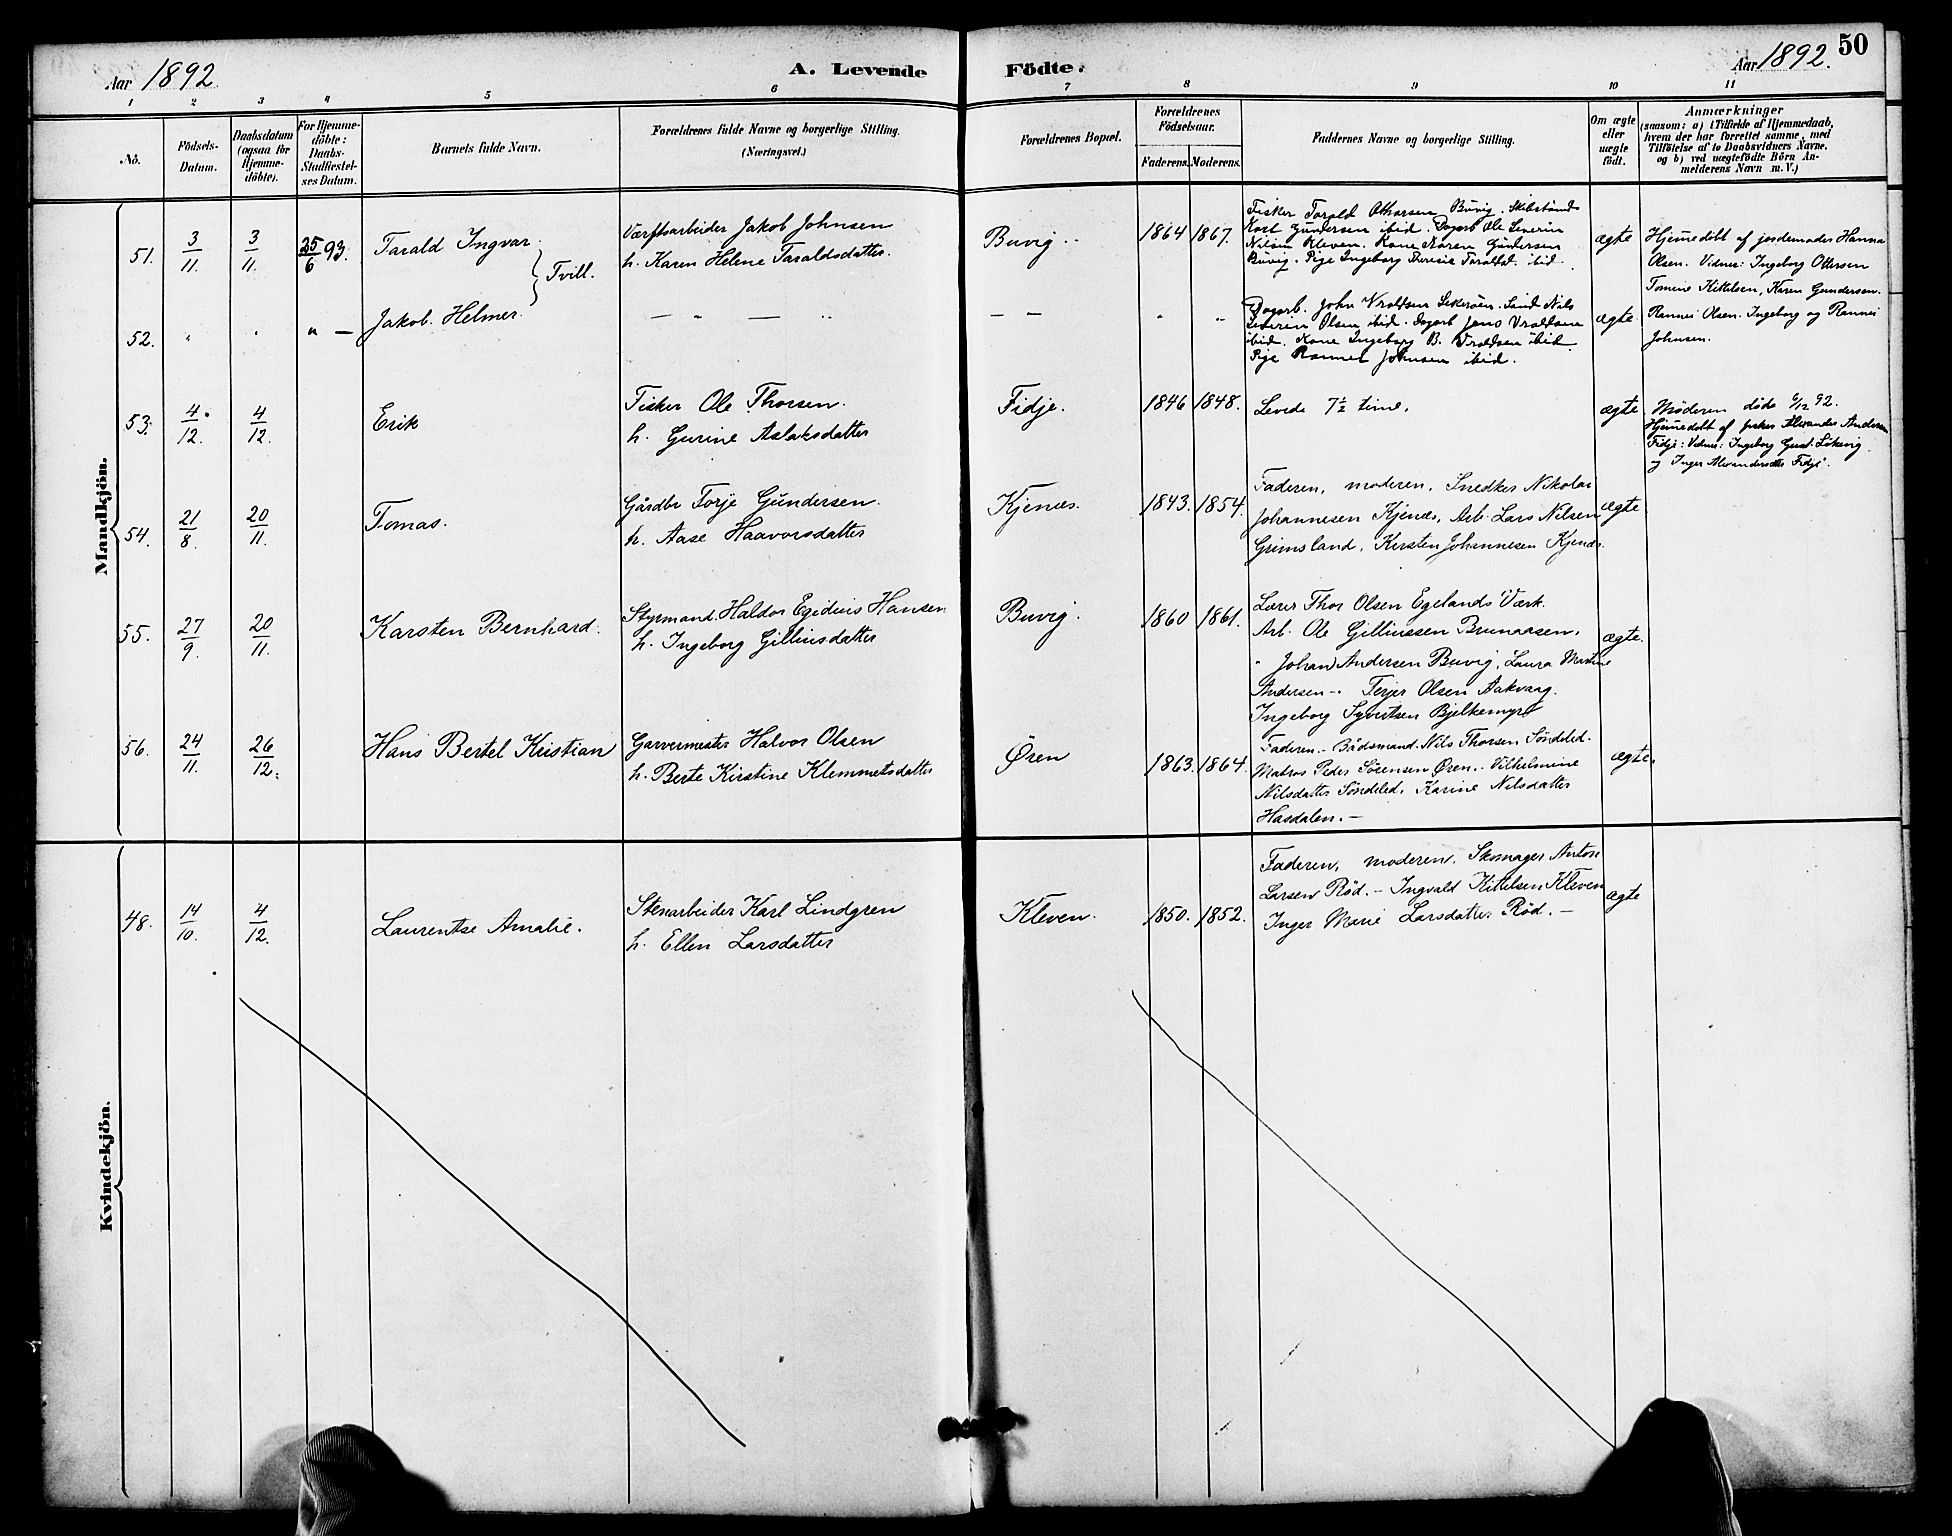 50
Aar 1892
A. Levende Födte.
Aar 1892.
1 2 3 4 5 6 7 8 9 10 11
No.
Födsels-
Datum.
Daabsdatum
(ogsaa for
Hjemme-
döbte).
For Hjemme-
döbte:
Daabs-
Stadfæstel-
ses Datum.
Barnets fulde Navn.
Forældrenes fulde Navne og borgerlige Stilling.
(Næringsvei.)
Forældrenes Bopæl.
Forældrenes
Födselsaar.
Faderens. Moderens.
Faddernes Navne og borgerlige Stilling.
Om ægte
eller
uægte
födt.
Anmærkninger
(saasom: a) i Tilfælde af Hjemmedaab,
hvem der har forrettet samme, med
Tilföielse af to Daabsvidners Navne,
og b) ved uægtefödte Börn An-
melderens Navn m. V.)
Mandkjön.
51.
3/11.
3/11.
25/6 93.
Tarald Ingvar.
Tvill.
Værftsarbeider Jakob Johnsen
h. Karen Helene Taraldsdatter.
Buvig.
1864 1867.
Fisker Tarald Ottersen Buvig. Skibstømd
Gundersen ibid. Dagarb Ole Severin
Nilsen Kleven. Kone Maren Gundersen
Buvig. Pige Ingeborg Theresie Taraldsd. ibid.
ægte
Hjemmedöbt af jordemoder Hanna
Olsen. Vidner: Ingeborg Ottersen
Tomine Kittelsen, Karen Gundersen.
52.
" " " —
Jakob. Helmer.
— " — "
— —
" "
Dagarb. John Vroldsen Sekeröen. Nils
Severin Olsen ibid. Dagarb Jens Vroldsen
ibid. Kone Ingeborg B. Vroldsen ibid.
Pige Rannei Johnsen ibid.
ægte
Rannei Olsen. Ingeborg og Rannei
Johnsen.
53.
4/12.
4/12.
Erik
Fisker Ole Thorsen.
h. Gurine Aslaksdatter
Fidje.
1846 1848.
Levede 7½ time.
ægte
Moderen döde 6/12 92.
Hjemmedöbt af fisker Alexander Andersen
Fidje: Vidner: Ingeborg
og Inger Alexandersdatter Fidje.
54.
21/8.
20/11.
Tomas.
Gårdbr Torje Gundersen.
h. Aase Haavorsdatter
Kjenes.
1843. 1854.
Faderen, moderen, Snedker Nikolai
Johannesen Kjenæs, Arb. Lars Nilsen
Grimsland, Kirsten Johannesen Kjenæs.
ægte
55.
27/9.
20/11.
Karsten Bernhard.
Styrmand Haldor Egidius Hansen
h. Ingeborg Gilliusdatter
Buvig.
1860 1861.
Lærer Thor Olsen Egelands Værk.
Arb. Ole Gilliussen Brunaasen.
" Johan Andersen Buvig, Laura Martine
Andersen —. Terjer Olsen Aakvaag.
Ingeborg Syvertsen Bjelkemyr
ægte.
56.
24/11.
26/12.
Hans Bertel Kristian
Garvermester Halvor Olsen
h. Berte Kirstine Klemmetsdatter
Øren
1863. 1864.
Faderen. — Bådsmand. Nils Thorsen Söndeled.
Matros Peder Sörensen Øren. Vilhelmine
Nilsdatter Söndeled, Karine Nilsdatter
Hasdalen. —
ægte.
Kvindekjön.
48.
14/10.
4/12.
Laurentse Amalie.
Stenarbeider Karl Lindgren
h. Ellen Larsdatter
Kleven.
1850. 1852.
Faderen, moderen. Skomager Anton
Larsen Röd. — Ingvald Kittelsen Kleven
Inger Marie Larsdatter Röd. —
ægte